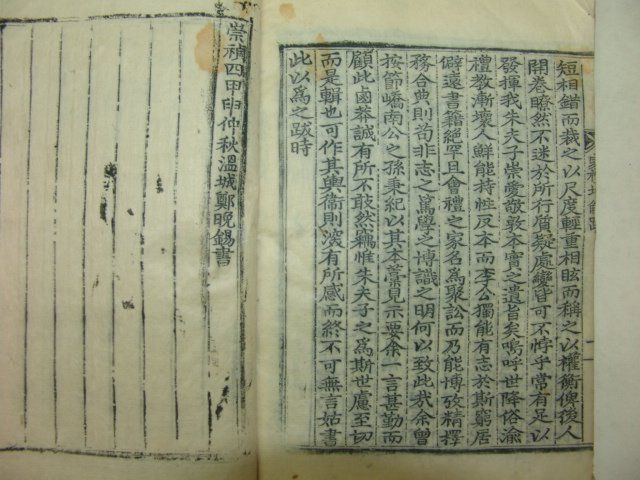 短相錯而裁之以尺度輕重相眩而稱之以權衡俾後人
開卷瞭然不迷於所行質疑處變皆可不悖乎常有足以
發揮我朱夫子崇愛敬敦本實之遺旨矣嗚呼世降俗渝
禮教漸壞人鮮能持性反本而李公獨能有志於斯窮居
僻遠書籍絶罕且會禮之家名爲聚訟而乃能博攷精擇
務合典則苟非志之篤學之博識之明何以致此我余曾
按節嶠南公之孫秉紀以其本藁見示要余一言甚勤而
顧此鹵莽誠有所不敢然竊惟朱夫子之爲斯世慮至切
而是輯也可作其輿衞則深有所感而終不可無言姑書
此以爲之跋時
崇禎四甲申仲秋溫城鄭晩錫書